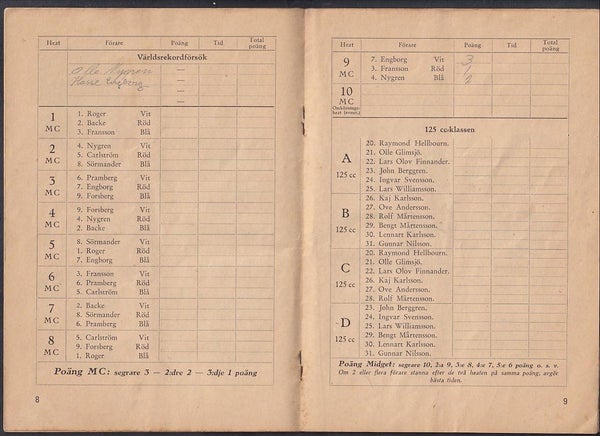 Heat Förare Poäng Tid Total poäng
Världsrekordförsök
Olle Nygren —
Hasse Engborg —
—
—
1 MC
1. Roger Vit
2. Backe Röd
3. Fransson Blå
2 MC
4. Nygren Vit
5. Carlström Röd
8. Sörmander Blå
3 MC
6. Pramberg Vit
7. Engborg Röd
9. Forsberg Blå
4 MC
9. Forsberg Vit
4. Nygren Röd
2. Backe Blå
5 MC
8. Sörmander Vit
1. Roger Röd
7. Engborg Blå
6 MC
3. Fransson Vit
6. Pramberg Röd
5. Carlström Blå
7 MC
2. Backe Vit
8. Sörmander Röd
6. Pramberg Blå
8 MC
5. Carlström Vit
9. Forsberg Röd
1. Roger Blå
Poäng MC: segrare 3 — 2:dre 2 — 3:dje 1 poäng
8
Heat Förare Poäng Tid Total poäng
9 MC
7. Engborg Vit 3
3. Fransson Röd 1
4. Nygren Blå 2
10
MC
Omkörnings-
heat (event.)
125 cc-klassen
A
125 cc
20. Raymond Hellbourn.
21. Olle Glimsjö.
22. Lars Olov Finnander.
23. John Berggren.
24. Ingvar Svensson.
25. Lars Williamsson.
B
125 cc
26. Kaj Karlsson.
27. Ove Andersson.
28. Rolf Mårtensson.
29. Bengt Mårtensson.
30. Lennart Karlsson.
31. Gunnar Nilson.
C
125 cc
20. Raymond Hellbourn.
21. Olle Glimsjö.
22. Lars Olov Finnander.
26. Kaj Karlsson.
27. Ove Andersson.
28. Rolf Mårtensson.
D
125 cc
23. John Berggren.
24. Ingvar Svensson.
25. Lars Williamsson.
29. Bengt Mårtensson.
30. Lennart Karlsson.
31. Gunnar Nilson.
Poäng Midget: segrare 10, 2:a 9, 3:e 8, 4:e 7, 5:e 6 poäng o. s. v.
Om 2 eller flera förare stanna efter de två heaten på samma poäng, avgör
bästa tiden.
9